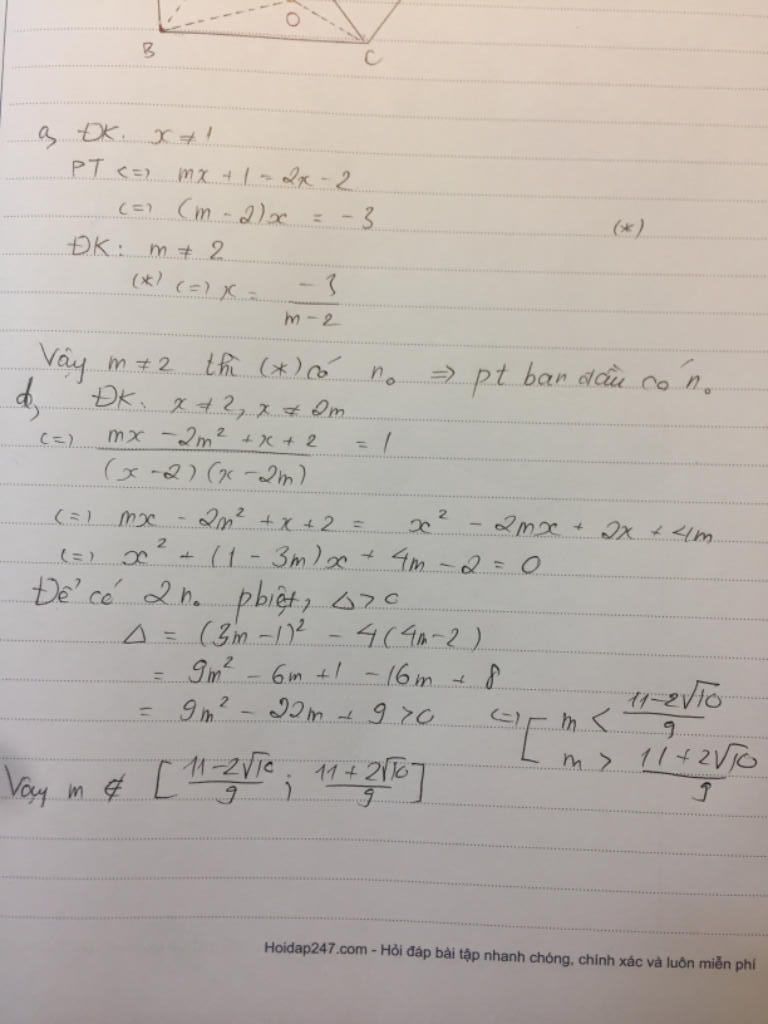 O
B
C
a, ĐK. x ≠ 1
PT <=> mx + 1 = 2x - 2
<=> (m - 2)x = -3 (*)
ĐK: m ≠ 2
(*) <=> x = -3 / (m - 2)
Vậy m ≠ 2 thì (*) có n₀ => pt ban đầu có n₀
d, ĐK. x ≠ 2, x ≠ 2m
<=> (mx - 2m² + x + 2) / ((x - 2)(x - 2m)) = 1
<=> mx - 2m² + x + 2 = x² - 2mx + 2x + 4m
<=> x² + (1 - 3m)x + 4m - 2 = 0
Để có 2 n₀ pbiệt, Δ > 0
Δ = (3m - 1)² - 4(4m - 2)
= 9m² - 6m + 1 - 16m + 8
= 9m² - 22m + 9 > 0 <=> [ m < (11 - 2√10) / 9
m > (11 + 2√10) / 9
Vậy m ∉ [ (11 - 2√10) / 9 ; (11 + 2√10) / 9 ]
Hoidap247.com - Hỏi đáp bài tập nhanh chóng, chính xác và luôn miễn phí